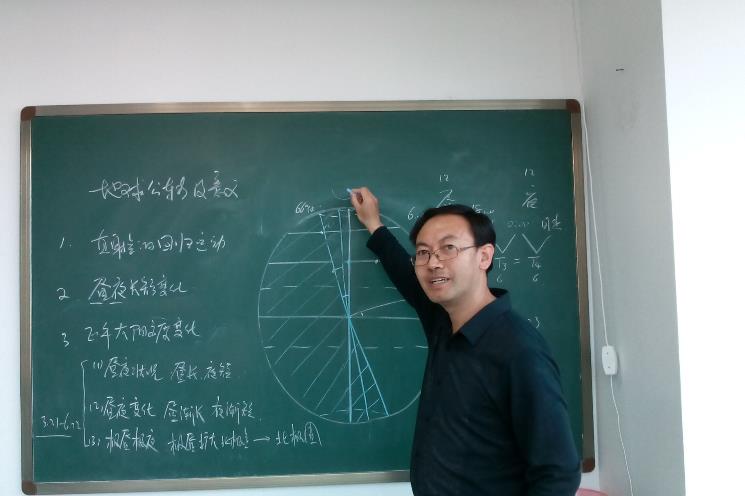 地球公转的意义
1. 直射点的回归运动
2 昼夜长短变化
3 正午太阳高度变化
(1)昼夜状况 昼长 夜短
3.21-6.22 (2)昼夜变化 昼渐长 夜渐短
(3)极昼极夜 极昼扩大 北极点→北极圈
12 12
昼 夜